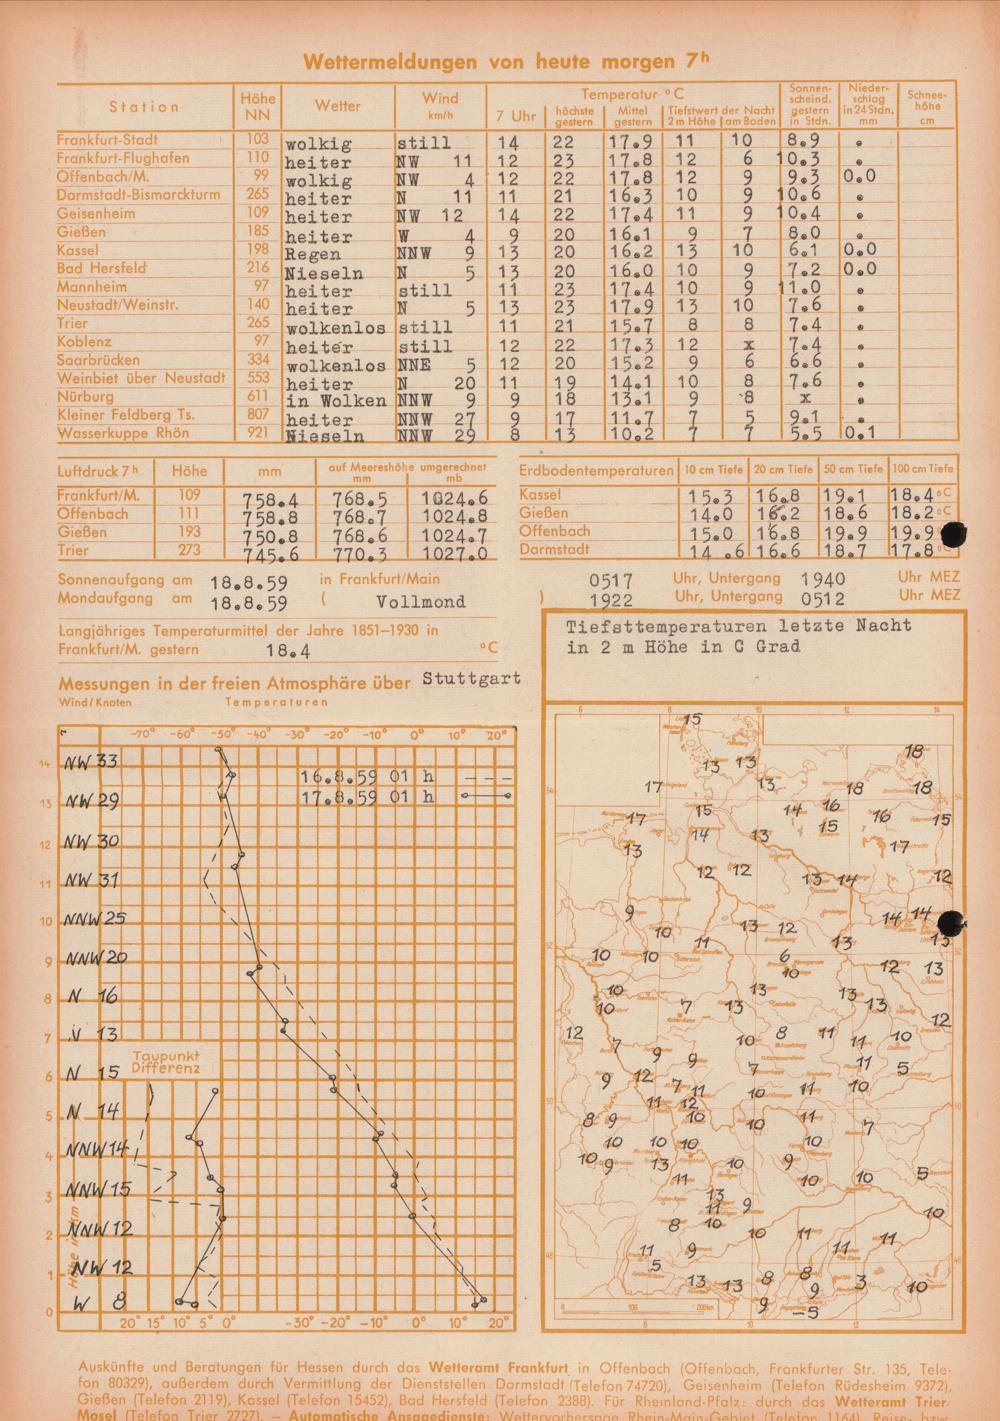 Wettermeldungen von heute morgen 7h
Station Höhe NN Wetter Wind km/h Temperatur °C Sonnenscheind. gestern in Stdn. Niederschlag in 24 Stdn. mm Schneehöhe cm
7 Uhr höchste gestern Mittel gestern Tiefstwert der Nacht 2m Höhe am Boden
Frankfurt-Stadt 103 wolkig still 14 22 17.9 11 10 8.9 .
Frankfurt-Flughafen 110 heiter NW 11 12 23 17.8 12 6 10.3 .
Offenbach/M. 99 wolkig NW 4 12 22 17.8 12 9 9.3 0.0
Darmstadt-Bismarckturm 265 heiter N 11 11 21 16.3 10 9 10.6 .
Geisenheim 109 heiter NW 12 14 22 17.4 11 9 10.4 .
Gießen 185 heiter W 4 9 20 16.1 9 7 8.0 .
Kassel 198 Regen NNW 9 13 20 16.2 13 10 6.1 0.0
Bad Hersfeld 216 Nieseln N 5 13 20 16.0 10 9 7.2 0.0
Mannheim 97 heiter still 11 23 17.4 10 9 11.0 .
Neustadt/Weinstr. 140 heiter N 5 13 23 17.9 13 10 7.6 .
Trier 265 wolkenlos still 11 21 15.7 8 8 7.4 .
Koblenz 97 heiter still 12 22 17.3 12 x 7.4 .
Saarbrücken 334 wolkenlos NNE 5 12 20 15.2 9 6 6.6 .
Weinbiet über Neustadt 553 heiter N 20 11 19 14.1 10 8 7.6 .
Nürburg 611 in Wolken NNW 9 9 18 13.1 9 8 x .
Kleiner Feldberg Ts. 807 heiter NNW 27 9 17 11.7 7 5 9.1 .
Wasserkuppe Rhön 921 Nieseln NNW 29 8 13 10.2 7 7 5.5 0.1
Luftdruck 7h Höhe mm auf Meereshöhe umgerechnet mm mb
Frankfurt/M. 109 758.4 768.5 1024.6
Offenbach 111 758.8 768.7 1024.8
Gießen 193 750.8 768.6 1024.7
Trier 273 745.6 770.3 1027.0
Erdbodentemperaturen 10 cm Tiefe 20 cm Tiefe 50 cm Tiefe 100 cm Tiefe
Kassel 15.3 16.8 19.1 18.4 °C
Gießen 14.0 16.2 18.6 18.2 °C
Offenbach 15.0 16.8 19.9 19.9
Darmstadt 14 .6 16.6 18.7 17.8 °C
Sonnenaufgang am 18.8.59 in Frankfurt/Main 0517 Uhr, Untergang 1940 Uhr MEZ
Mondaufgang am 18.8.59 ( Vollmond ) 1922 Uhr, Untergang 0512 Uhr MEZ
Langjähriges Temperaturmittel der Jahre 1851–1930 in
Frankfurt/M. gestern 18.4 °C
Messungen in der freien Atmosphäre über Stuttgart
Wind/Knoten Temperaturen
-70° -60° -50° -40° -30° -20° -10° 0° 10° 20°
16.8.59 01 h
17.8.59 01 h
14 NW 33
13 NW 29
12 NW 30
11 NW 31
10 NNW 25
9 NNW 20
8 N 16
7 N 13
6 N 15
Taupunkt
Differenz
5 N 14
4 NNW 14
3 NNW 15
2 NNW 12
1 NW 12
0 W 8
Höhe in km
20° 15° 10° 5° 0° -30° -20° -10° 0° 10° 20°
Tiefsttemperaturen letzte Nacht
in 2 m Höhe in C Grad
6 8 10 12 14
15
18
13 13
17 13 18 18
15 14 16
17 15 16 15
14 13 17
13
12 12 13 14 12
9 14 14
10 13 12 13
11 13
10 10 6 12 13
10
10 13 13
10 7 13 13
12 10 8 11 10 12
7 11
9 9 7 11 5
9 12 7 11 10 11 10
11 12
8 9 10 10 11 7
10 10 10 10
10 9 13 10 9
11 10 10 5
13 9
11 10
8 10 10 11
11 9 11 11
5
13 13 8 8 3 10
9 9
-5
0 100 200km
Auskünfte und Beratungen für Hessen durch das Wetteramt Frankfurt in Offenbach (Offenbach, Frankfurter Str. 135, Tele-
fon 80329), außerdem durch Vermittlung der Dienststellen Darmstadt (Telefon 74720), Geisenheim (Telefon Rüdesheim 9372),
Gießen (Telefon 2119), Kassel (Telefon 15452), Bad Hersfeld (Telefon 2388). Für Rheinland-Pfalz: durch das Wetteramt Trier
Mosel (Telefon Trier 2727). – Automatische Ansagedienste: Wettervorhersage Rhein-Main-Gebiet